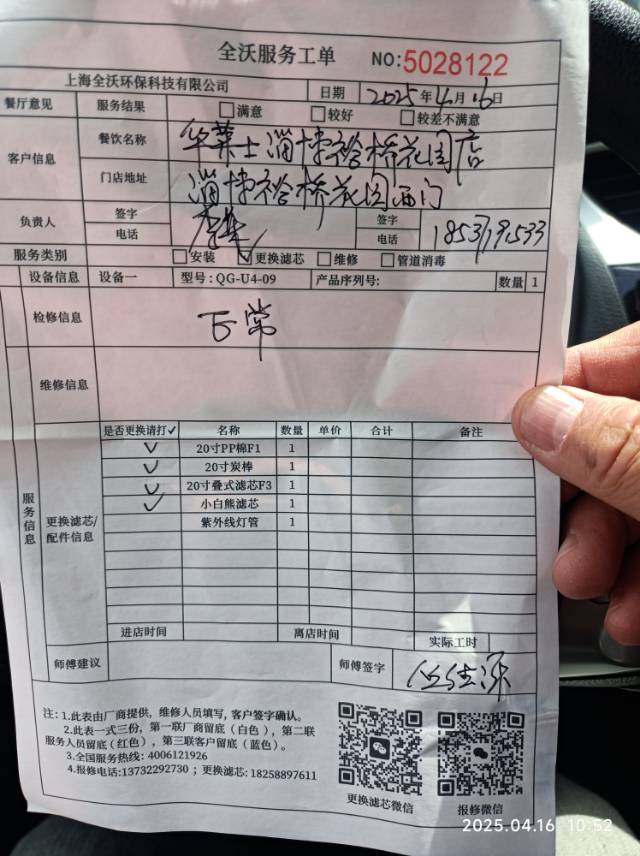 全沃服务工单 NO:5028122
上海全沃环保科技有限公司 日期 2025年4月16日
餐厅意见 服务结果 □满意 □较好 □较差不满意
客户信息 餐饮名称 华莱士淄博裕桥花园店
门店地址 淄博裕桥花园西门
负责人 签字 签字
电话 电话
服务类别 □安装 ☑更换滤芯 □维修 □管道消毒
设备信息 设备一 型号:QG-U4-09 产品序列号: 数量 1
检修信息 正常
维修信息
服务信息
更换滤芯/配件信息
是否更换请打✓ 名称 数量 单价 合计 备注
✓ 20寸PP棉F1 1
✓ 20寸炭棒 1
✓ 20寸叠式滤芯F3 1
✓ 小白熊滤芯 1
紫外线灯管 1
进店时间 离店时间 实际工时
师傅建议 师傅签字
注:1.此表由厂商提供,维修人员填写,客户签字确认。
2.此表一式三份,第一联厂商留底(白色),第二联
服务人员留底(红色),第三联客户留底(蓝色)。
3.全国服务热线:4006121926
4.报修电话:13732292730 ; 更换滤芯:18258897611
更换滤芯微信 报修微信
2025.04.16 10:52